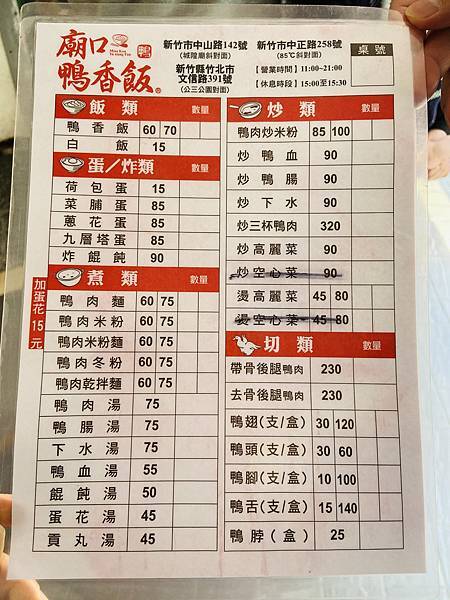 廟口
鴨香飯®
鴨
新竹市中山路142號
(城隍廟斜對面)
新竹市中正路258號
(85℃斜對面)
新竹縣竹北市
文信路391號
(公三公園對面)
【營業時間】11:00~21:00
【休息時段】15:00至15:30
桌號
飯類 數量
鴨香飯 60 70
白飯 15
蛋/炸類 數量
荷包蛋 15
菜脯蛋 85
蔥花蛋 85
九層塔蛋 85
炸餛飩 90
煮類 數量
加蛋花15元
鴨肉麵 60 75
鴨肉米粉 60 75
鴨肉米粉麵 60 75
鴨肉冬粉 60 75
鴨肉乾拌麵 60 75
鴨肉湯 75
鴨腸湯 75
下水湯 75
鴨血湯 55
餛飩湯 50
蛋花湯 45
貢丸湯 45
炒類 數量
鴨肉炒米粉 85 100
炒鴨血 90
炒鴨腸 90
炒下水 90
炒三杯鴨肉 320
炒高麗菜 90
炒空心菜 90
燙高麗菜 45 80
燙空心菜 45 80
切類 數量
帶骨後腿鴨肉 230
去骨後腿鴨肉 230
鴨翅(支/盒) 30 120
鴨頭(支/盒) 30 60
鴨腳(支/盒) 10 100
鴨舌(支/盒) 15 140
鴨脖(盒) 25